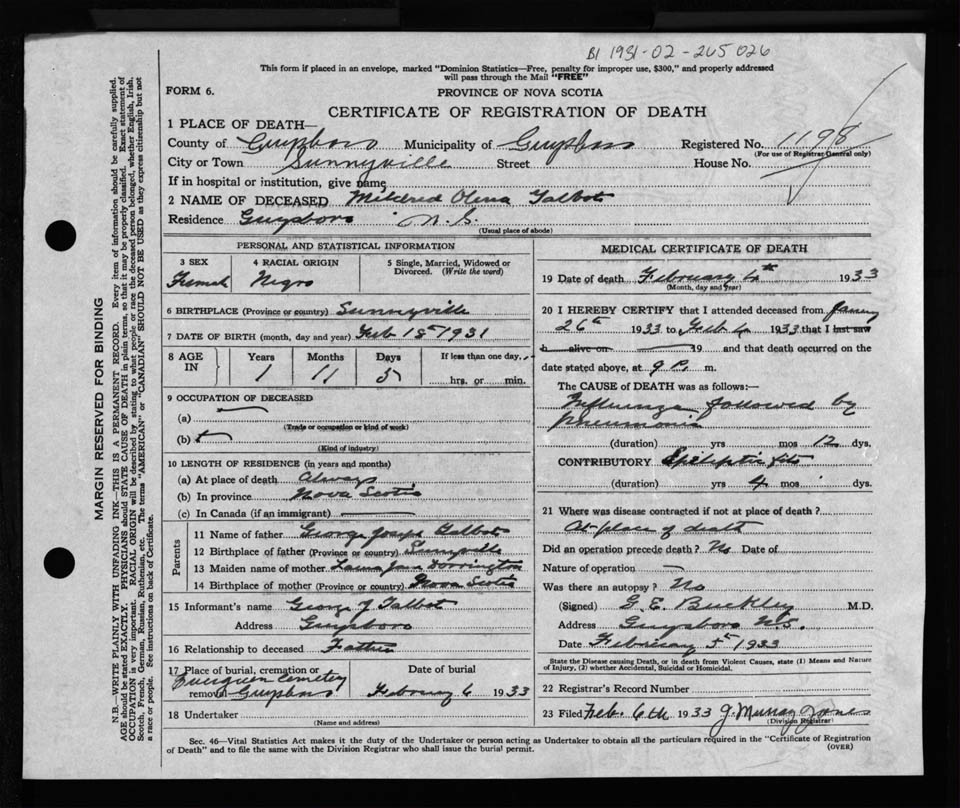 BI 1931-02-265026
This form if placed in an envelope, marked "Dominion Statistics—Free, penalty for improper use, $300," and properly addressed
will pass through the Mail "FREE"
FORM 6.
PROVINCE OF NOVA SCOTIA
CERTIFICATE OF REGISTRATION OF DEATH
1 PLACE OF DEATH—
County of Guysboro Municipality of Guysboro Registered No. 1198
(For use of Registrar General only)
City or Town Sunnyville Street House No.
If in hospital or institution, give name
2 NAME OF DECEASED Mildred Talbot
Residence Guysboro N. S.
(Usual place of abode)
PERSONAL AND STATISTICAL INFORMATION
3 SEX
Female
4 RACIAL ORIGIN
Negro
5 Single, Married, Widowed or
Divorced. (Write the word)
6 BIRTHPLACE (Province or country) Sunnyville
7 DATE OF BIRTH (month, day and year) Feb 1st 1931
8 AGE IN
Years Months Days If less than one day,
1 11 5 hrs. or min.
9 OCCUPATION OF DECEASED
(a)
(Trade or occupation or kind of work)
(b)
(Kind of industry)
10 LENGTH OF RESIDENCE (in years and months)
(a) At place of death Always
(b) In province Nova Scotia
(c) In Canada (if an immigrant)
Parents
11 Name of father George Joseph Talbot
12 Birthplace of father (Province or country) Sunnyville
13 Maiden name of mother Laura Jane Dorrington
14 Birthplace of mother (Province or country) Nova Scotia
15 Informant's name George J Talbot
Address Guysboro
16 Relationship to deceased Father
17 Place of burial, cremation or Date of burial
Evergreen Cemetery
removal Guysboro February 6 1933
18 Undertaker
(Name and address)
MEDICAL CERTIFICATE OF DEATH
19 Date of death February 4th 1933
(Month, day and year)
20 I HEREBY CERTIFY that I attended deceased from January
26th 1933 to Feb 4 1933 that I last saw
h alive on 19 and that death occurred on the
date stated above, at 9 P. m.
The CAUSE of DEATH was as follows:—
Influenza followed by
Pneumonia
(duration) yrs mos 12 dys.
CONTRIBUTORY Epileptic fits
(duration) yrs 4 mos dys.
21 Where was disease contracted if not at place of death?
At place of death
Did an operation precede death? No Date of
Nature of operation
Was there an autopsy? No
(Signed) G. E. Buckley M.D.
Address Guysboro N.S.
Date February 5th 1933
State the Disease causing Death, or in death from Violent Causes, state (1) Means and Nature
of Injury, (2) whether Accidental, Suicidal or Homicidal.
22 Registrar's Record Number
23 Filed Feb. 6th 1933 J Murray Jones
(Division Registrar)
Sec. 46—Vital Statistics Act makes it the duty of the Undertaker or person acting as Undertaker to obtain all the particulars required in the "Certificate of Registration
of Death" and to file the same with the Division Registrar who shall issue the burial permit.
(OVER)
MARGIN RESERVED FOR BINDING
N.B.—WRITE PLAINLY WITH UNFADING INK—THIS IS A PERMANENT RECORD. Every item of information should be carefully supplied.
AGE should be stated EXACTLY. PHYSICIANS should STATE CAUSE OF DEATH in plain terms, so that it may be properly classified. Exact statement of
OCCUPATION is very important. RACIAL ORIGIN will be described by stating to what people or race the deceased person belonged, whether English, Irish,
Scotch, French, German, Russian, Ruthenian, etc. The terms "AMERICAN" or "CANADIAN" SHOULD NOT BE USED as they express citizenship but not
a race or people. See instructions on back of Certificate.